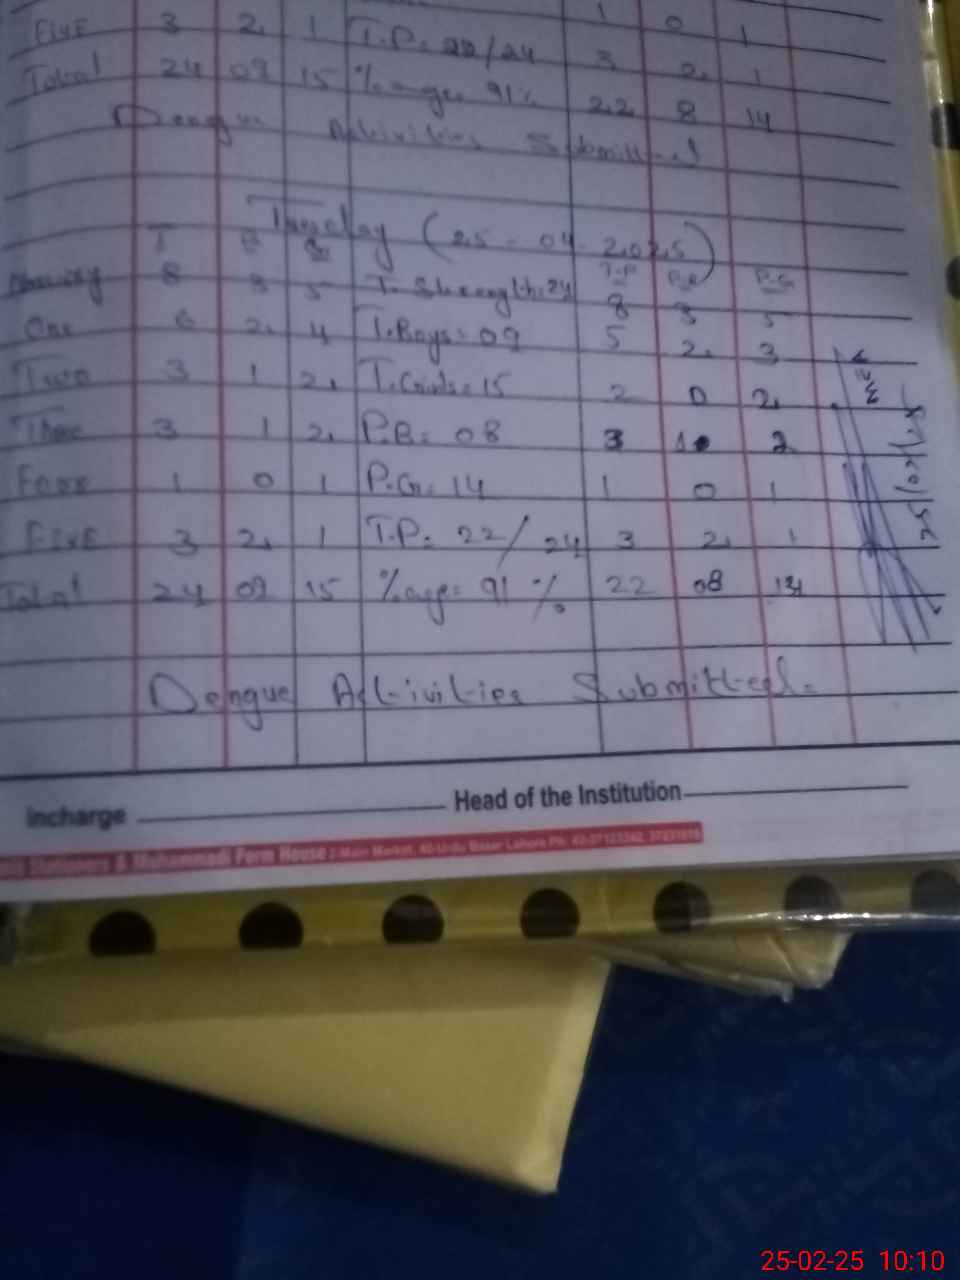 Five 3 2 1 T.P= 22/24 3 2 1
Total 24 09 15 %age= 91% 22 8 14
Dengue Activities Submitted
Tuesday (25-04-2025)
T B G T.P P.B P.G
Nursery 8 3 5 T. Strength=24 8 3 5
One 6 2 4 T.Boys=09 5 2 3
Two 3 1 2 T.Girls=15 2 0 2
Three 3 1 2 P.B= 08 3 1 2
Four 1 0 1 P.G= 14 1 0 1
Five 3 2 1 T.P= 22/24 3 2 1
Total 24 09 15 %age= 91% 22 08 14
Dengue Activities Submitted.
Incharge Head of the Institution
Stationers & Muhammadi Form House : Main Market, 40-Urdu Bazar Lahore Ph:
25-02-25 10:10